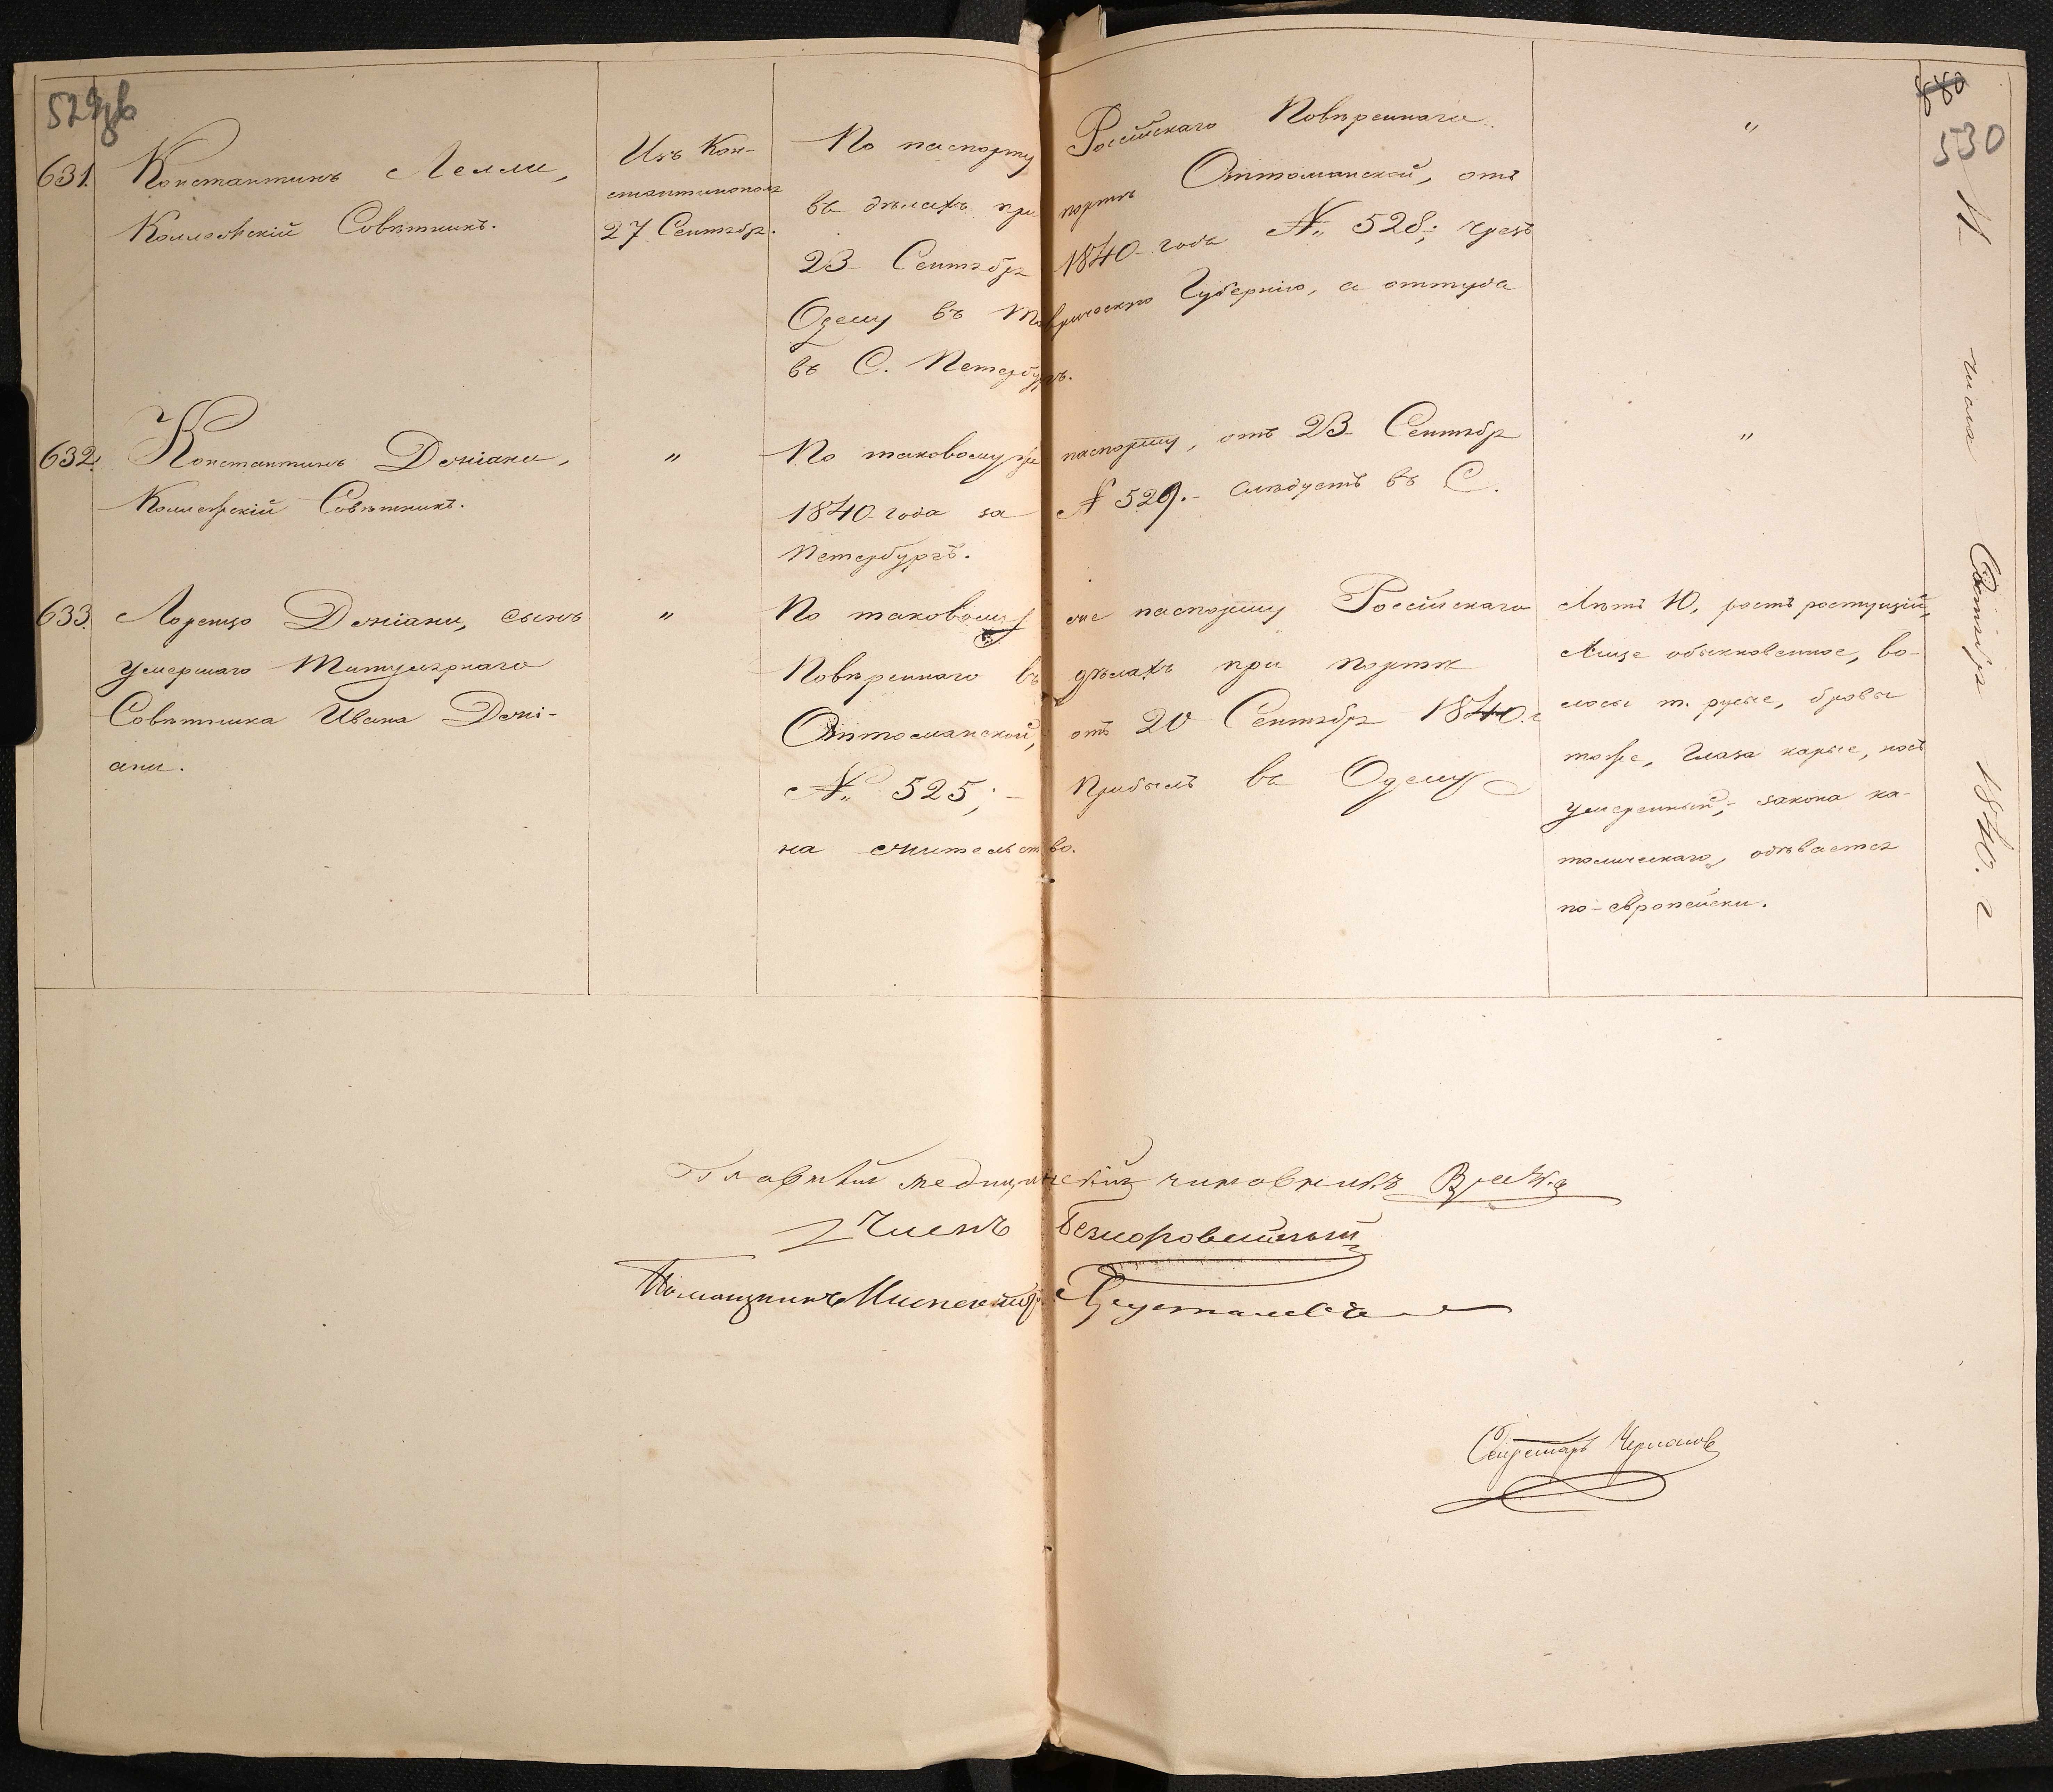 529 об
530
631. Константинъ Лелли,
Коллежскій Совѣтникъ.
Изъ Кон-
стантинополя
27 Сентябр.
По паспорту Россійскаго Повѣреннаго
въ дѣлахъ при портѣ Оттоманской, отъ
23 Сентября 1840 года № 528; чрезъ
Одессу въ Таврическую Губернію, а оттуда
въ С. Петербургъ.
"
632. Константинъ Дежіани,
Коллежскій Совѣтникъ.
"
По таковому же паспорту, отъ 23 Сентября
1840 года за № 529.- слѣдуетъ въ С.
Петербургъ.
"
633. Лоренцо Дежіани, сынъ
умершаго Титулярнаго
Совѣтника Ивана Дежі-
ани.
"
По таковому же паспорту Россійскаго
Повѣреннаго въ дѣлахъ при портѣ
Оттоманской, отъ 20 Сентября 1840. г
№ 525;- прибылъ въ Одессу
на жительство.
Лѣтъ 10, ростъ ростущій,
лице обыкновенное, во-
лосы т. русые, бровы
тоже, глаза карые, носъ
умеренный;- закона ка-
толическаго, одѣвается
по-европейски.
числа Октября 1840. г
Главный медицинскій чиновникъ
Членъ
Помощникъ
Секретарь